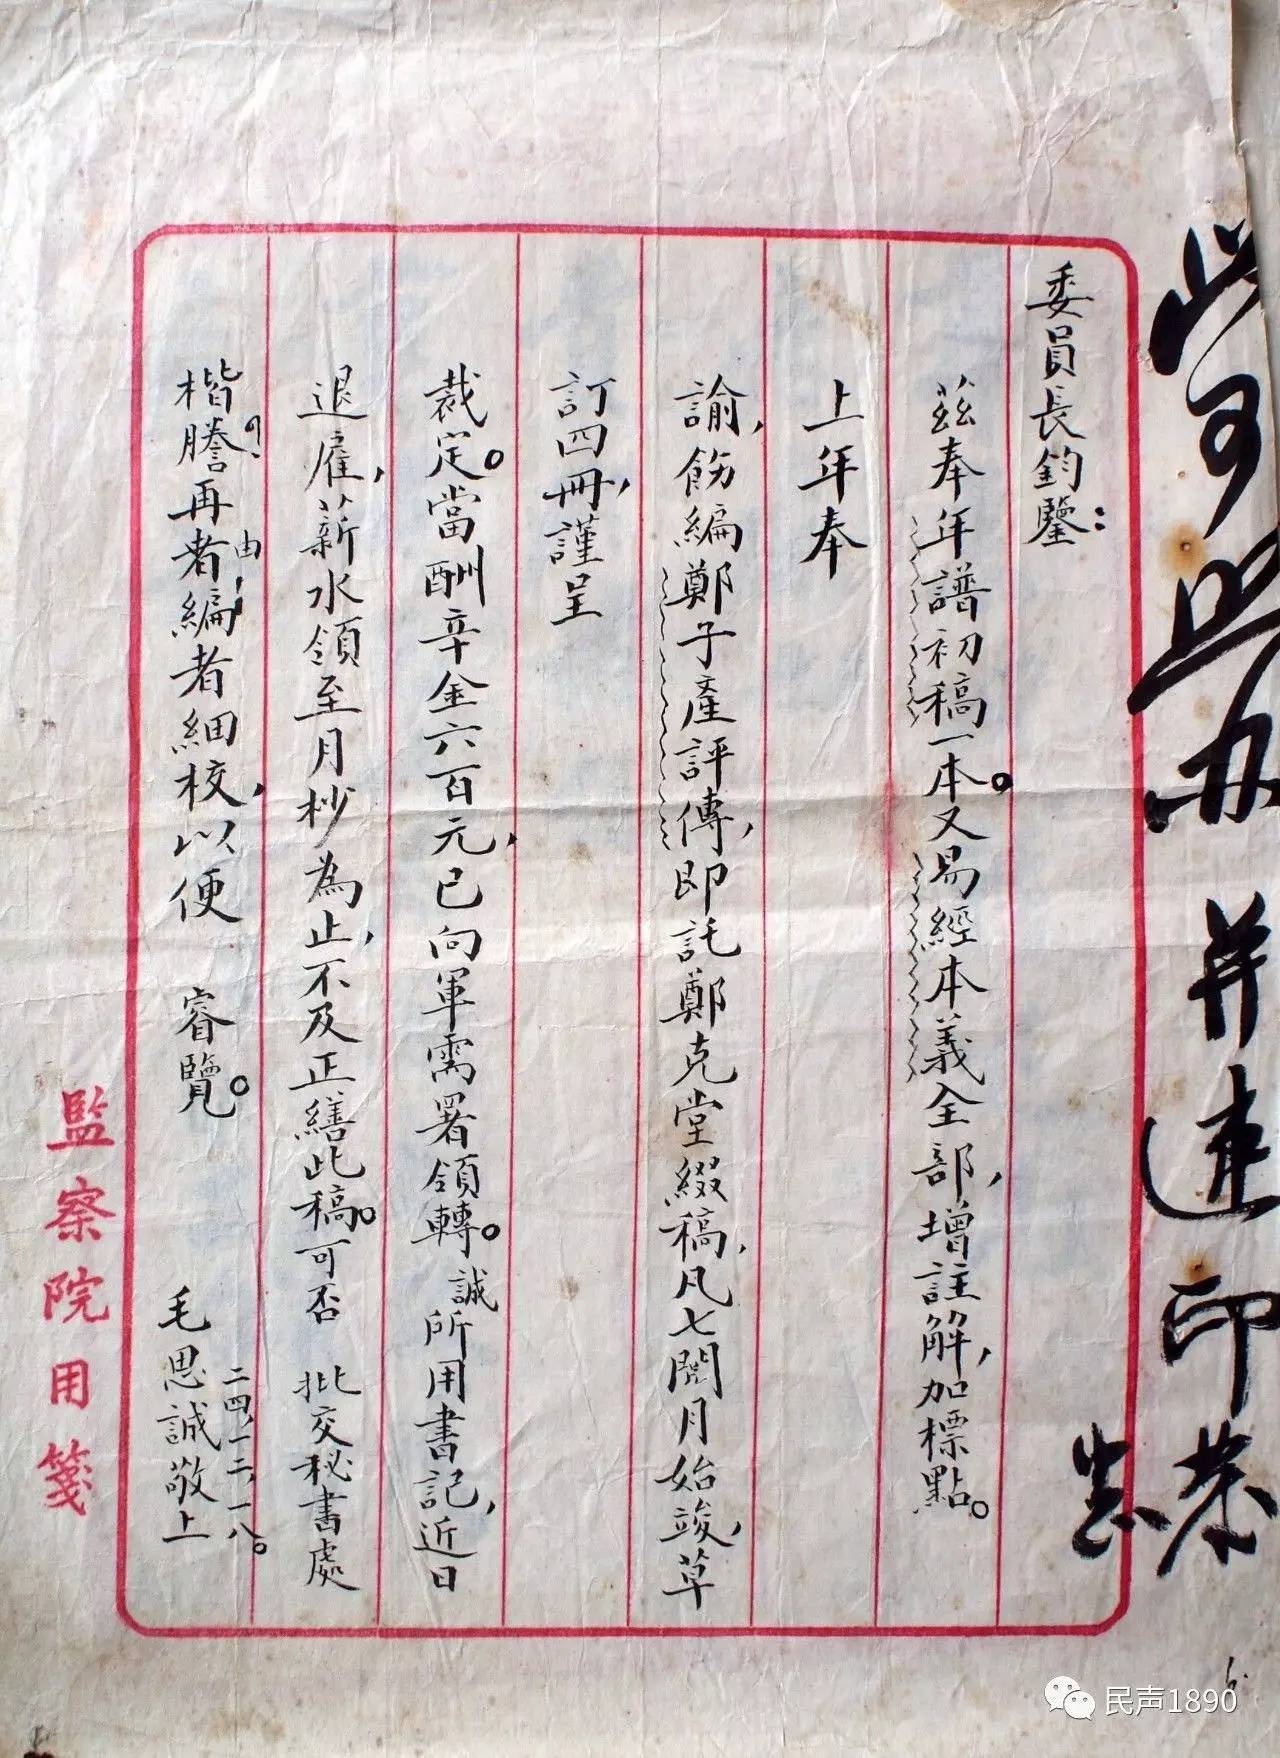 可照办 并速印
委員長鈞鑒：
茲奉年譜初稿一本。又易經本義全部，增註解，加標點。
上年奉
諭，飭編鄭子產評傳，即託鄭克堂綴稿，凡七閱月始竣，草
訂四冊，謹呈
裁定。當酬辛金六百元，已向軍需署領轉。誠所用書記，近日
退雇，薪水領至月杪為止，不及正繕此稿。可否 批交秘書處
楷謄？再者由編者細校，以便 睿覽。
毛思誠敬上
二四，十二，一八。
監察院用箋
民声1890